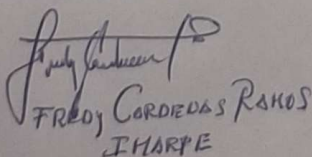 FREDY CARDENAS RAMOS
IHARPE